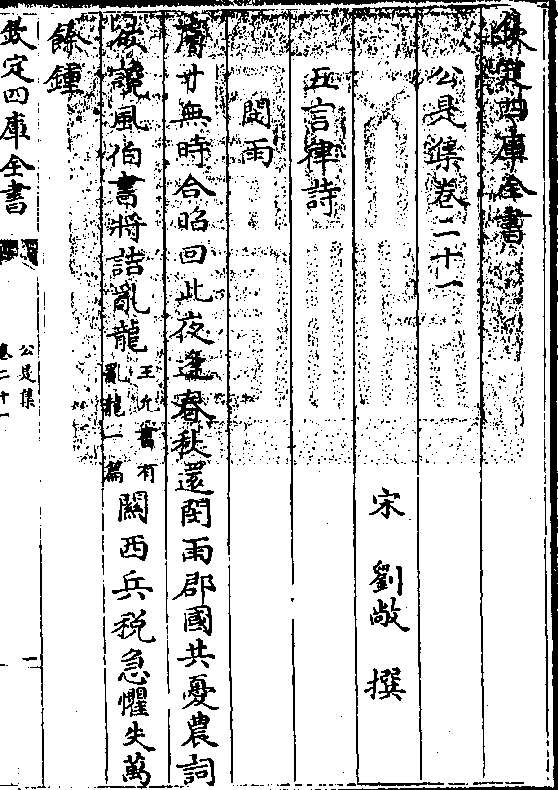 欽定四庫全書
公是集卷二十一
宋 劉敞 撰
五言律詩
閔雨
膚寸無時合昭回此夜逢春秋還閔雨郡國共憂農詞
風伯書將詰亂龍王充書有亂龍一篇關西兵税急懼失萬
餘鍾
欽定四庫全書
公是集
卷二十一